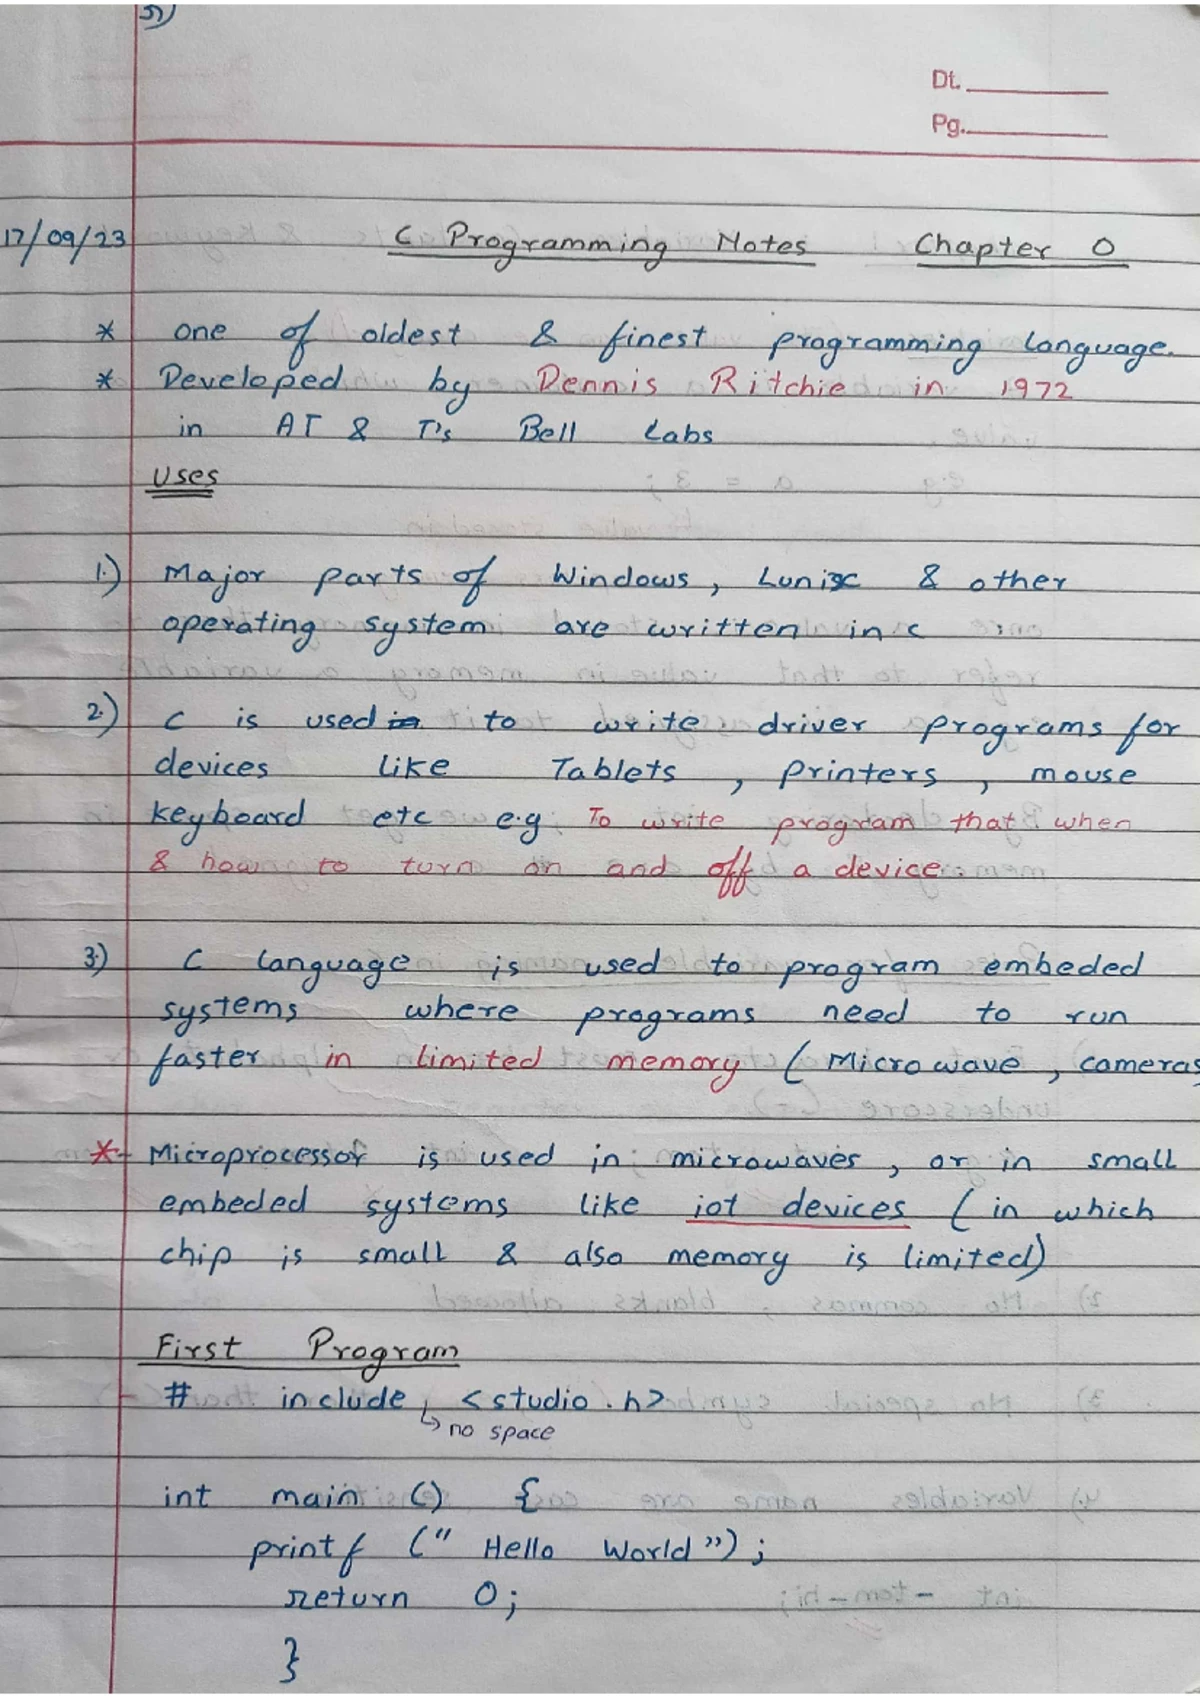 Dt.
Pg.
17/09/23 C Programming Notes Chapter 0
* one of oldest & finest programming language.
* Developed by Dennis Ritchie in 1972
in AT & T's Bell Labs
Uses
1.) Major parts of Windows, Lunix & other
operating system are written in c
2.) C is used in to write driver programs for
devices like Tablets, printers, mouse
keyboard etc e.g To write program that when
& how to turn on and off a device.
3.) C language is used to program embeded
systems where programs need to run
faster in limited memory (Microwave, cameras
* Microprocessor is used in microwaves, or in small
embeded systems like iot devices (in which
chip is small & also memory is limited)
First Program
# include <studio.h>
↳ no space
int main () {
printf (" Hello World ");
return 0;
}